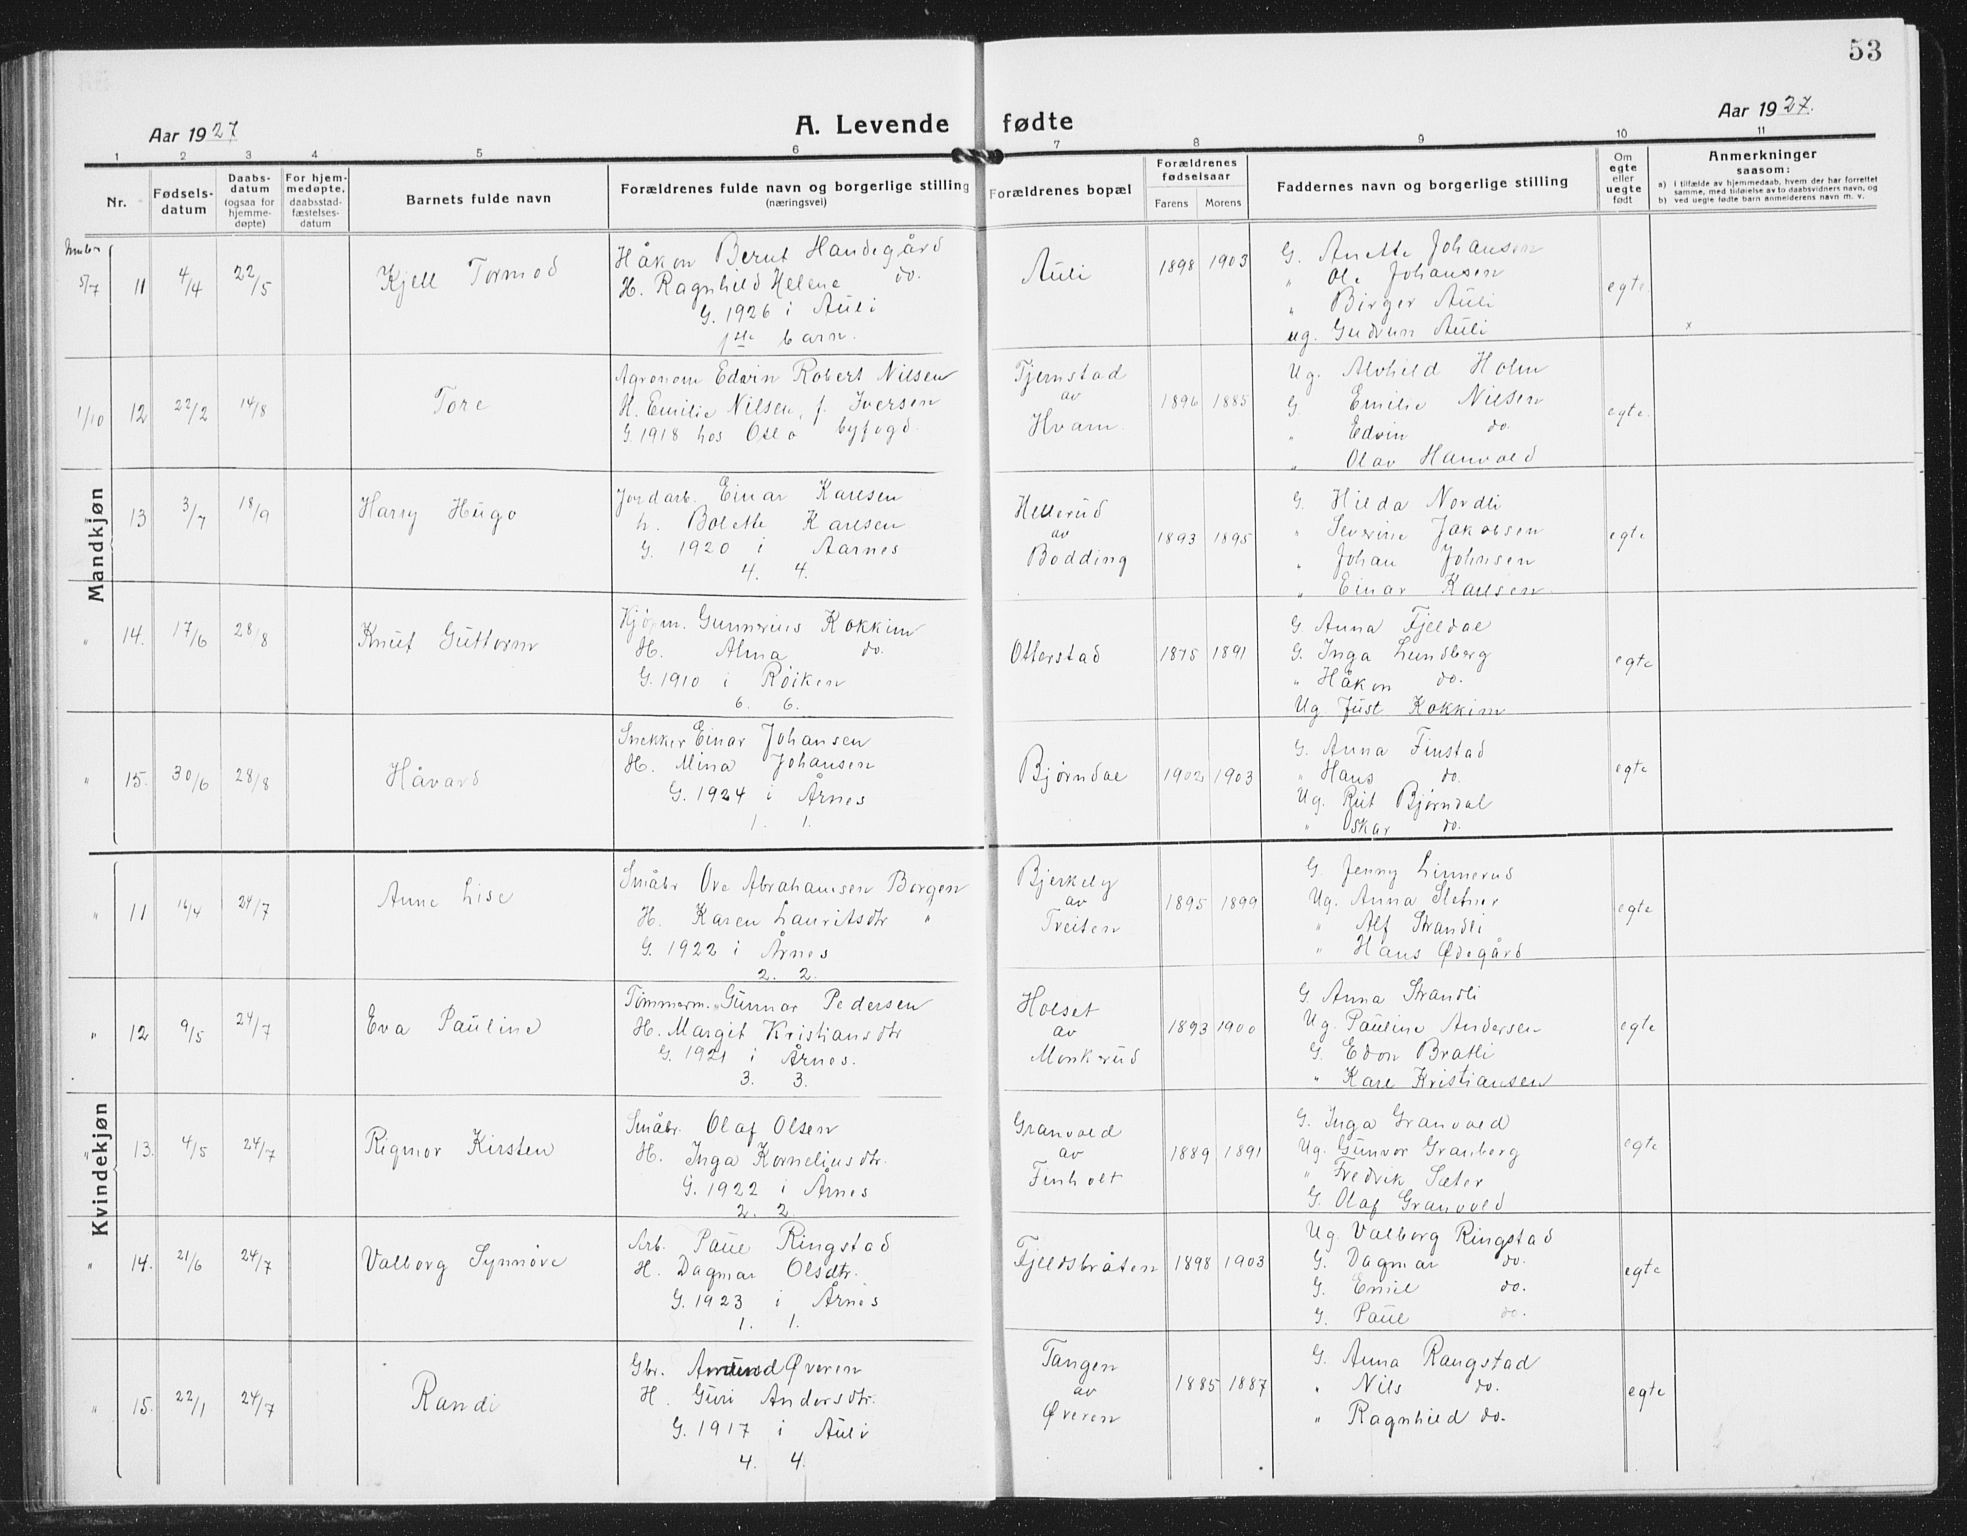 53
Aar 1927
A. Levende fødte
Aar 1927.
1 2 3 4 5 6 7 8 9 10 11
Nr.
Fødsels-
datum
Daabs-
datum
(ogsaa for
hjemme-
døpte)
For hjem-
medøpte,
daabsstad-
fæstelses-
datum
Barnets fulde navn
Forældrenes fulde navn og borgerlige stilling
(næringsvei)
Forældrenes bopæl
Forældrenes
fødselsaar
Farens Morens
Faddernes navn og borgerlige stilling
Om
egte
eller
uegte
født
Anmerkninger
saasom:
a) I tilfælde av hjemmedaab, hvem der har forrettet
samme, med tilføielse av to daabsvidners navn, og
b) ved uegte fødte barn anmelderens navn m. v.
Mandkjøn
5/7 11 4/4 22/5 Kjell Tormod
Håkon Bernt Handegård
H. Ragnhild Helene do.
G. 1926 i Auli
1ste barn.
Auli 1898 1903
G. Anette Johansen
" Ole Johansen
" Birger Auli
ug. Gudrun Auli
egte x
1/10 12 22/2 14/8 Tore
Agronom Edvin Robert Nilsen
H. Emilie Nilsen, f. Iversen
G. 1918 hos Oslo byfogd.
Tjernstad
av
Hvam.
1896 1885
Ug. Alvhild Holm
G. Emilie Nilsen
" Edvin do.
" Olav Hanvold
egte.
13 3/7 18/9 Harry Hugo
Jordarb. Einar Karlsen
h. Bolette Karlsen
G. 1920 i Aarnes
4. 4.
Hellerud
av
Bodding
1893 1895
G. Hilda Nordli
" Severine Jakobsen
" Johan Johnsen
" Einar Karlsen
egte
" 14. 17/6 28/8 Knut Guttorm
Kjøpm. Gunnerius Kokkim
H. Alma do.
G. 1910 i Røiken
6. 6.
Otterstad 1875 1891
G. Anna Fjeldal
G. Inga Lundberg
" Håkon do.
Ug. Just Kokkim
egte
" 15. 30/6 28/8 Håvard
Snekker Einar Johansen
H. Mina Johansen
G. 1924 i Årnes
1. 1.
Bjørndal 1902 1903
G. Anna Finstad
" Hans do.
Ug. Rut Bjørndal
" Oskar do.
egte
Kvindekjøn
" 11 16/4 24/7 Anne Lise
Småbr Ove Abrahamsen Borgen
H. Karen Lauritsdtr "
G. 1922 i Årnes
2. 2.
Bjerkely
av
Treiten
1895 1899
G. Jenny Linnerud
Ug. Anna Sletner
" Alf Strandli
" Hans Ødegård
egte
" 12 9/5 24/7 Eva Pauline
Tømmerm. Gunnar Pedersen
H. Margit Kristiansdtr
G. 1921 i Årnes.
3. 3.
Holset
av
Monkerud
1893 1900
G. Anna Strandli
Ug. Pauline Andersen
G. Edon Bratli
" Kare Kristiansen
egte
" 13. 4/5 24/7 Rigmor Kirsten
Småbr. Olaf Olsen
H. Inga Korneliusdtr.
G. 1922 i Årnes
2. 2.
Granvold
av
Finholt
1889 1891
G. Inga Granvold
Ug. Gunvor Granberg
" Fredrik Sæter
G. Olaf Granvold
egte
" 14. 21/6 24/7 Valborg Synnøve
Arb. Paul Ringstad
H. Dagmar Olsdtr.
G. 1923 i Årnes
1. 1.
Fjeldsbråten 1898 1903
Ug. Valborg Ringstad
G. Dagmar do.
G. Emil do.
G. Paul do.
egte
" 15. 22/1 24/7 Randi
Gbr. Amund Øveren
H. Guri Andersdtr.
G. 1917 i Auli
4. 4.
Tangen
av
Øveren
1885 1887
G. Anna Rangstad
" Nils do.
" Ragnhild do.
egte